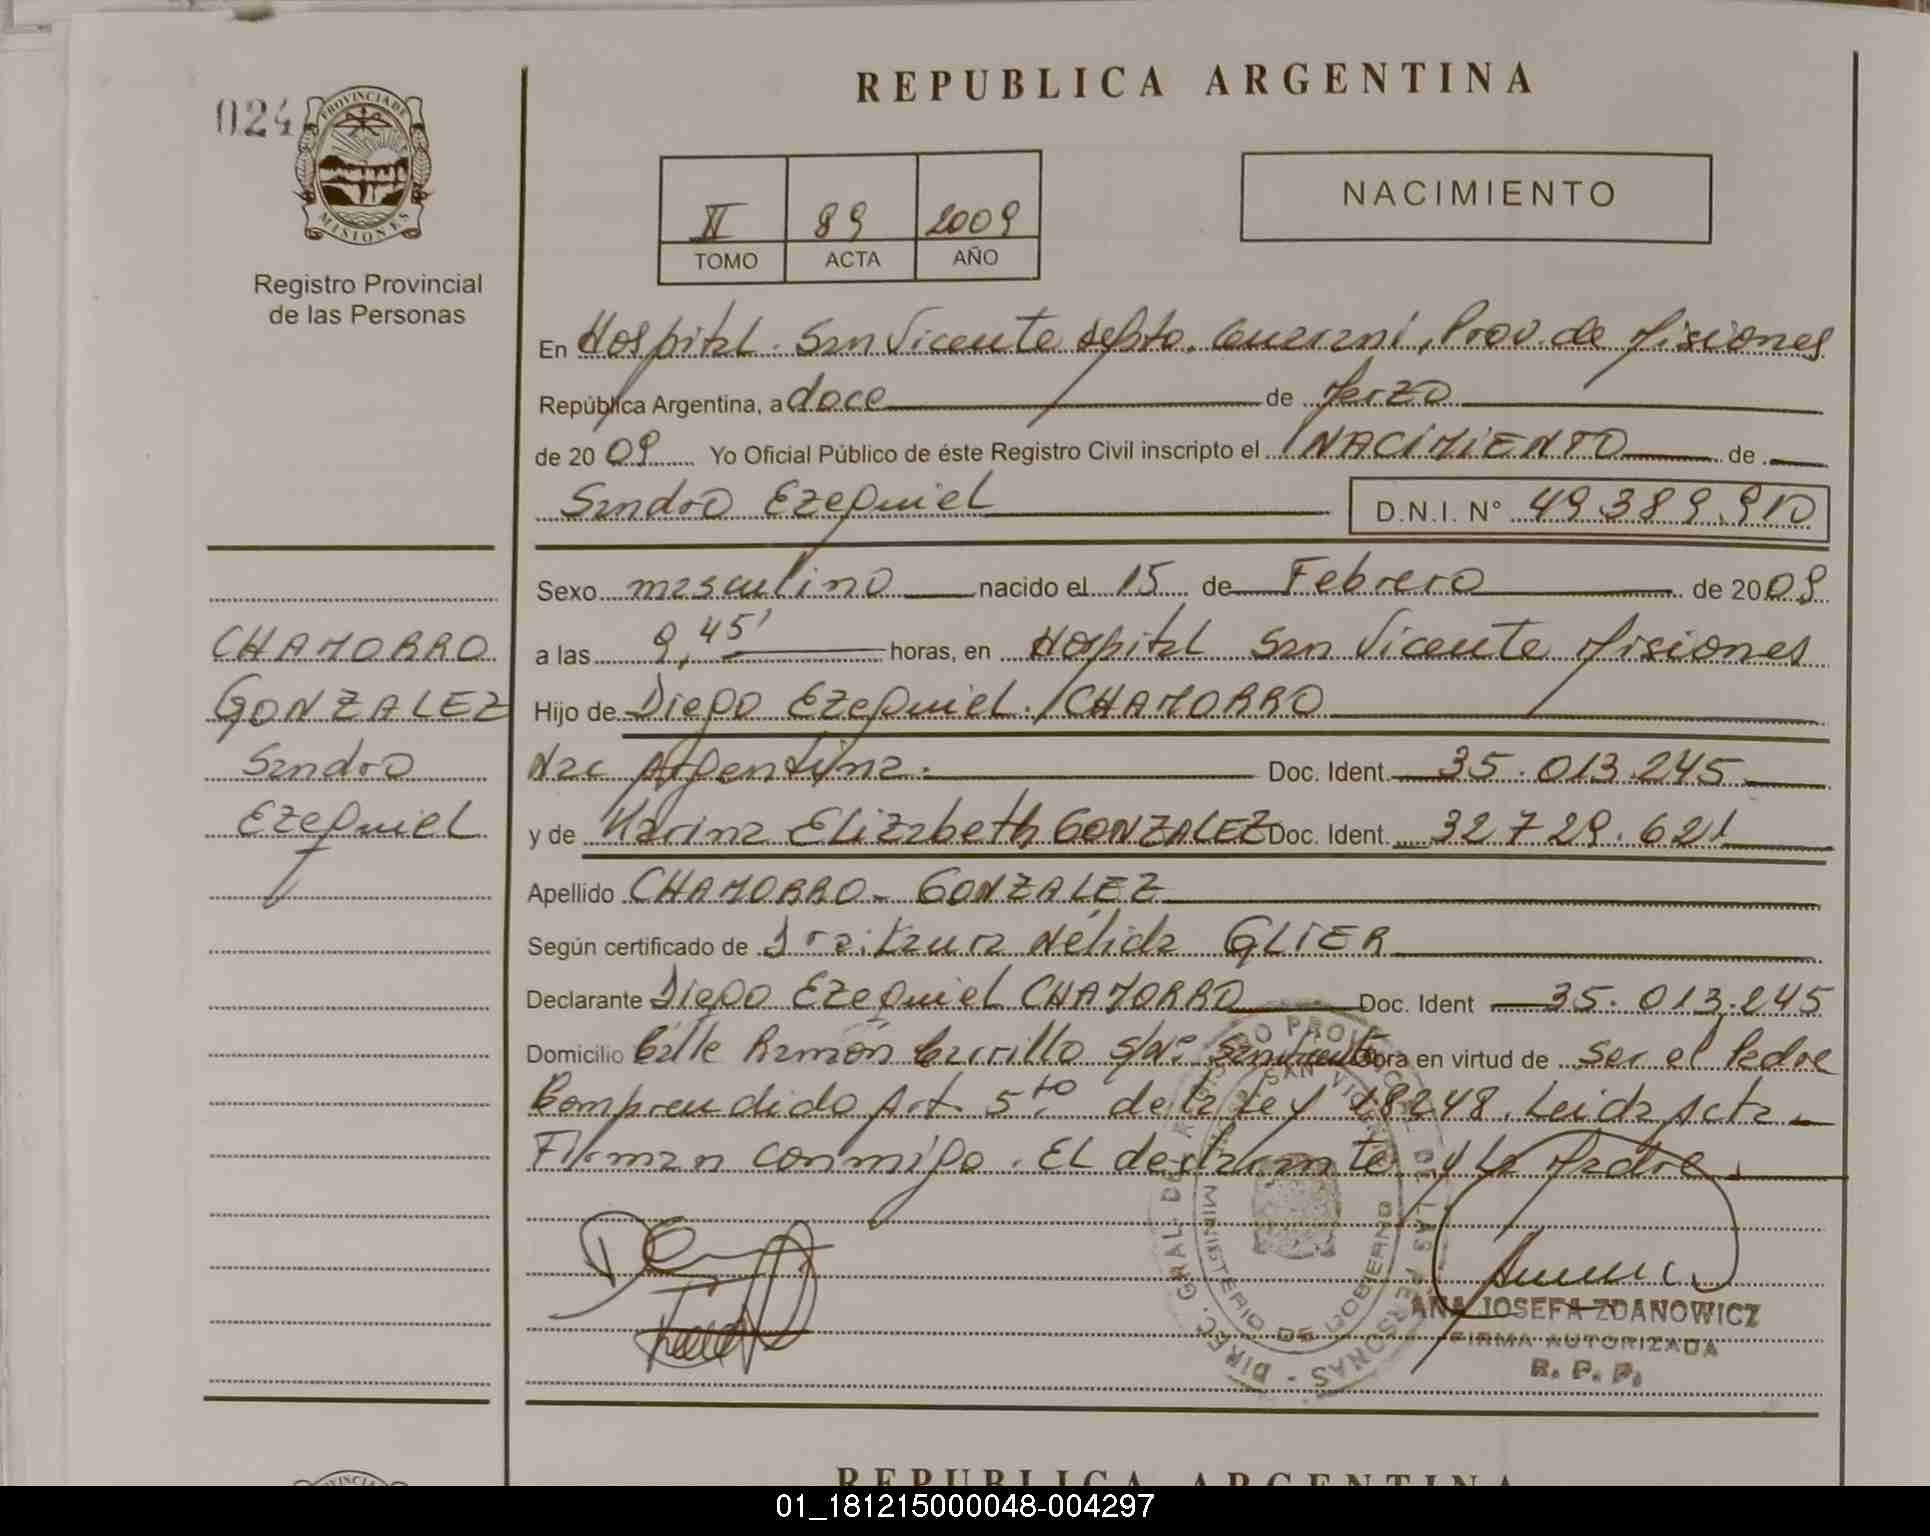 REPUBLICA ARGENTINA
024
PROVINCIA DE
MISIONES
Registro Provincial
de las Personas
II 89 2009
TOMO ACTA AÑO
NACIMIENTO
En Hospital. San Vicente depto. Guarani, Prov. de Misiones
República Argentina, a doce de Marzo
de 20 09 Yo Oficial Público de éste Registro Civil inscripto el NACIMIENTO de
Sandro Ezequiel D.N.I. N° 49.389.910
Sexo masculino nacido el 15 de Febrero de 2009
a las 9,45' horas, en Hospital San Vicente Misiones
Hijo de Diego Ezequiel. CHAMORRO
Nac Argentina. Doc. Ident. 35.013.245
y de Karina Elizabeth GONZALEZ Doc. Ident. 32.729.621
Apellido CHAMORRO - GONZALEZ
Según certificado de Dra: Laura Nélida GLIER
Declarante Diego Ezequiel CHAMORRO Doc. Ident 35.013.245
Domicilio Calle Ramón Carrillo s/n° San Vicente Obra en virtud de ser el Padre
Comprendido Art. 5to de la Ley 18248. Leida Acta
Firman conmigo. El declarante y la Madre.
CHAMORRO
GONZALEZ
Sandro
Ezequiel
DIREC. GRAL. DE REGISTRO PROVINCIAL DE LAS PERSONAS
SAN VICENTE
MINISTERIO DE GOBIERNO
ANA JOSEFA ZDANOWICZ
FIRMA AUTORIZADA
R. P. P.
REPUBLICA ARGENTINA
01_181215000048-004297